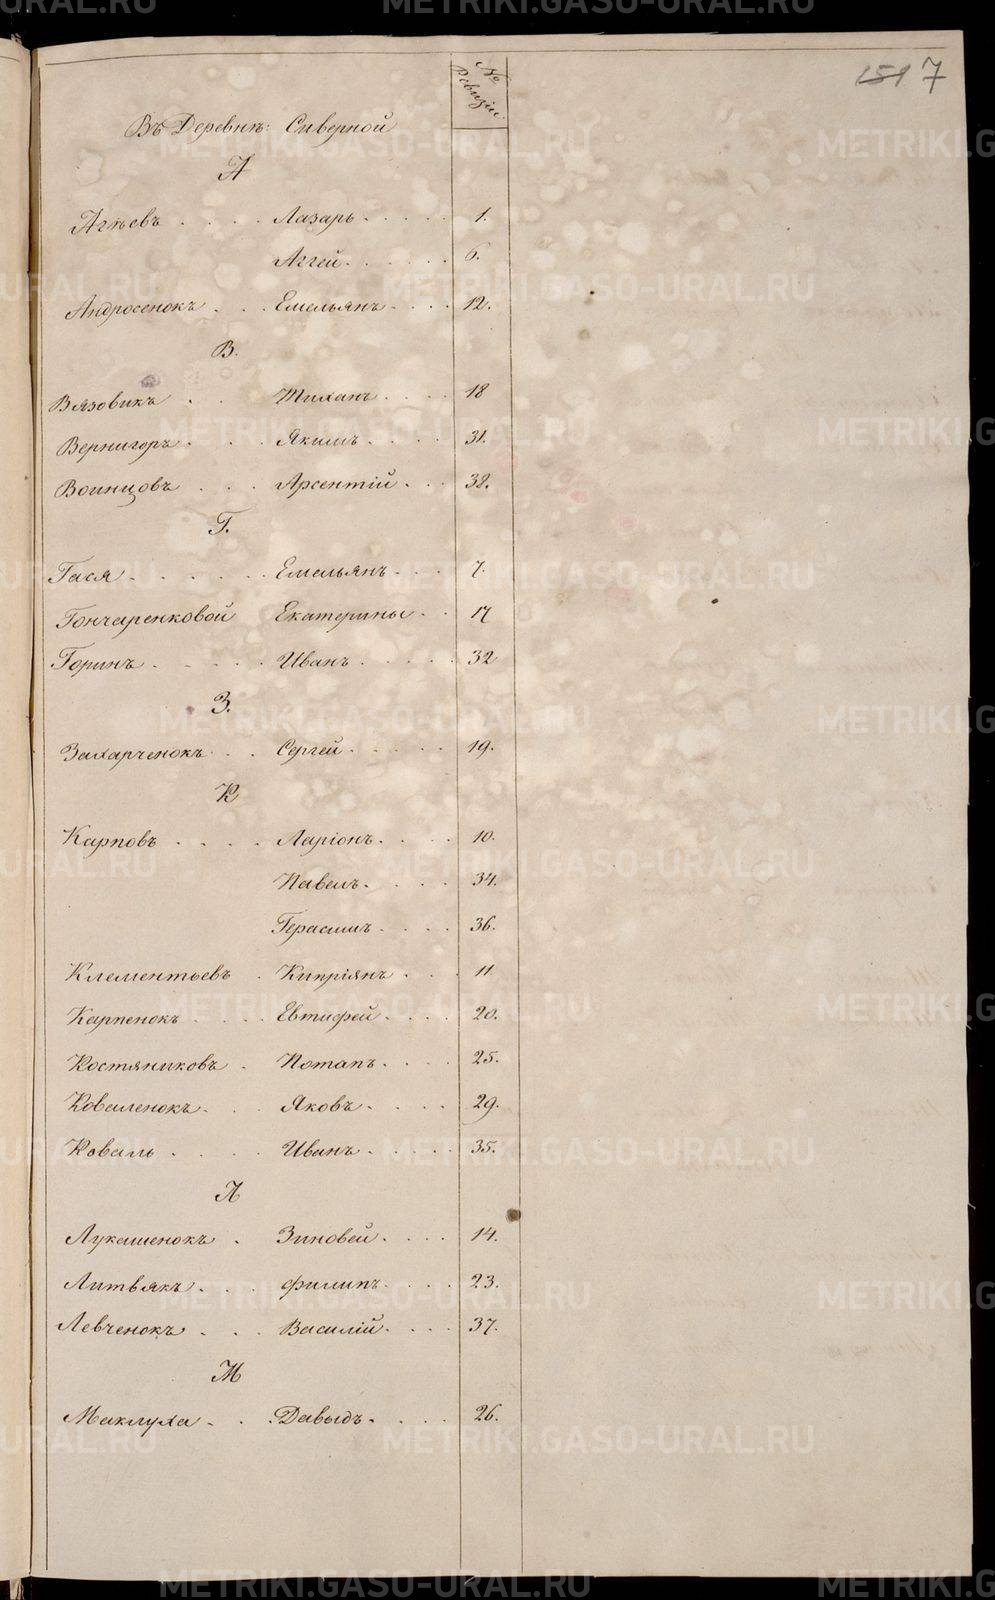 151 7
№ Ревизіи.
Въ Деревнѣ: Сиверной
А
Агѣевъ Лазарь 1.
Аггей 6.
Андросенокъ Емельянъ 12.
В.
Вязовикъ Тиханъ 18
Вернигоръ Якимъ 31.
Воинцовъ Арсентій 38.
Г.
Гася Емельянъ 7.
Гончаренковой Екатерины 17
Горинъ Иванъ 32
З.
Захарченокъ Сергей 19.
К
Карповъ Ларіонъ 10.
Павелъ 34.
Герасимъ 36.
Клементьевъ Кипріянъ 11.
Карпенокъ Евтифей 20.
Костяниковъ Потапъ 25.
Коваленокъ Яковъ 29.
Коваль Иванъ 35.
Л
Лукашенокъ Зиновей 14.
Литвякъ Филипъ 23.
Левченокъ Василій 37.
М
Маклуха Давыдъ 26.
METRIKI.GASO-URAL.RU